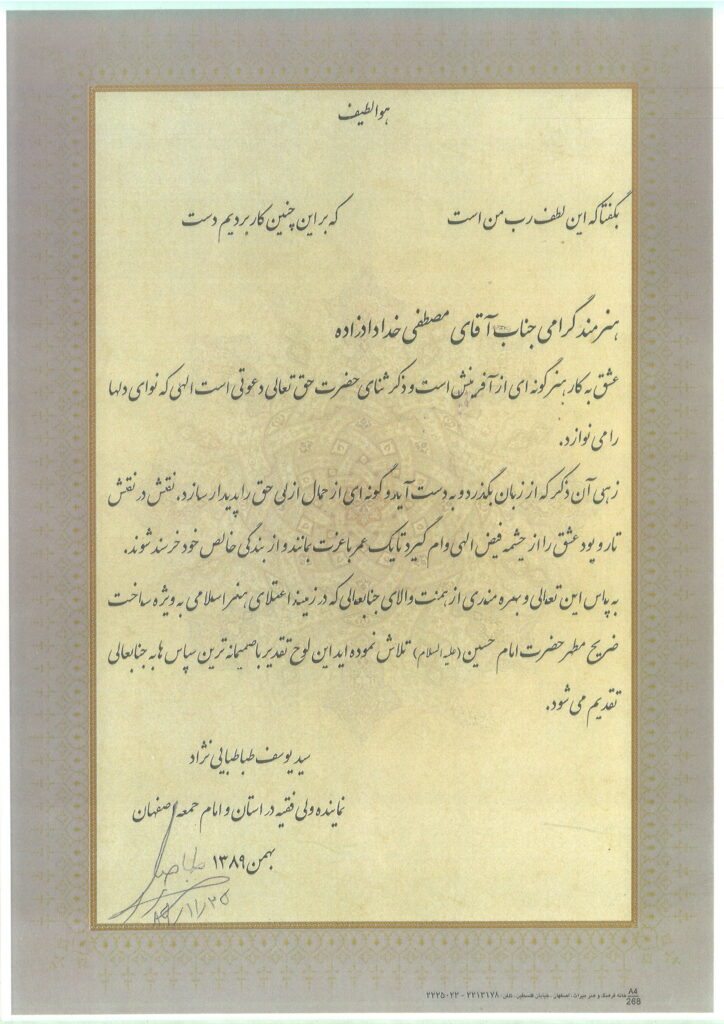 هو الطیف
بگفتا که این لطف رب من است که بر این چنین کار بردیم دست
هنرمند گرامی جناب آقای مصطفی خدادادزاده
عشق به کار هنر گونه ای از آفرینش است و ذکر ثنای حضرت حق تعالی دعوتی است الهی که نوای دلها
را می نوازد.
زهی آن ذکر که از زبان بگذرد و به دست آید و گونه ای از جمال ازلی حق را پدیدار سازد. نقش در نقش
تار و پود عشق را از چشمه فیض الهی وام گیرد تا یک عمر با عزت بمانند و از بندگی خالص خود خرسند شوند.
به پاس این تعالی و بهره مندی از همت والای جنابعالی که در زمینه اعتلای هنر اسلامی به ویژه ساخت
ضریح مطهر حضرت امام حسین (علیه السلام) تلاش نموده اید این لوح تقدیر با صمیمانه ترین سپاس ها به جنابعالی
تقدیم می شود.
سید یوسف طباطبایی نژاد
نماینده ولی فقیه در استان و امام جمعه اصفهان
بهمن ۱۳۸۹
۸۹/۱۱/۲۵
A4
268
خانه فرهنگ و هنر میراث: اصفهان - خیابان فلسطین - تلفن: ۲۲۱۳۱۷۸ - ۲۲۲۵۰۲۲